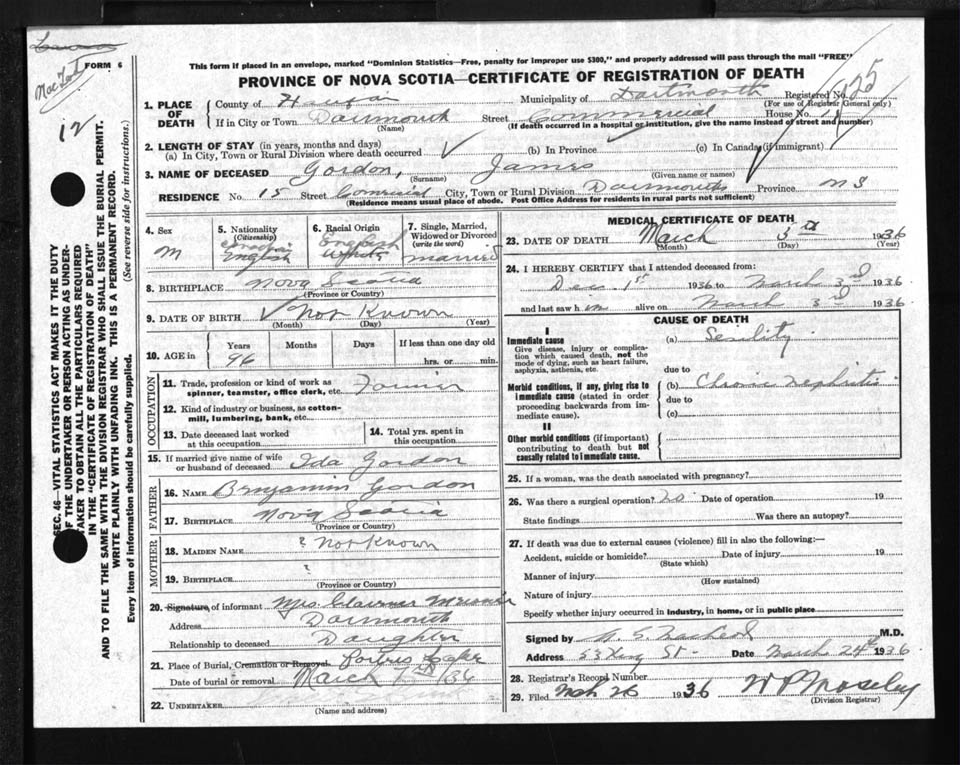 FORM 6
This form if placed in an envelope, marked "Dominion Statistics—Free, penalty for improper use $300," and properly addressed will pass through the mail "FREE"
PROVINCE OF NOVA SCOTIA—CERTIFICATE OF REGISTRATION OF DEATH
12
SEC. 46—VITAL STATISTICS ACT MAKES IT THE DUTY
OF THE UNDERTAKER OR PERSON ACTING AS UNDER-
TAKER TO OBTAIN ALL THE PARTICULARS REQUIRED
IN THE "CERTIFICATE OF REGISTRATION OF DEATH"
AND TO FILE THE SAME WITH THE DIVISION REGISTRAR WHO SHALL ISSUE THE BURIAL PERMIT.
WRITE PLAINLY WITH UNFADING INK. THIS IS A PERMANENT RECORD.
Every item of information should be carefully supplied. (See reverse side for instructions.)
1. PLACE OF DEATH
County of Municipality of Dartmouth Registered No.
(For use of Registrar General only)
If in City or Town Dartmouth Street Commercial House No.
(Name) (If death occurred in a hospital or institution, give the name instead of street and number)
2. LENGTH OF STAY (in years, months and days)
(a) In City, Town or Rural Division where death occurred (b) In Province (c) In Canada (if immigrant)
3. NAME OF DECEASED Gordon, James
(Surname) (Given name or names)
RESIDENCE No. 15 Street Comercial City, Town or Rural Division Dartmouth Province NS
(Residence means usual place of abode. Post Office Address for residents in rural parts not sufficient)
4. Sex M
5. Nationality (Citizenship) English
6. Racial Origin English White
7. Single, Married, Widowed or Divorced (write the word) married
8. BIRTHPLACE Nova Scotia
(Province or Country)
9. DATE OF BIRTH Not Known
(Month) (Day) (Year)
10. AGE in Years 96 Months Days If less than one day old hrs. or min.
OCCUPATION
11. Trade, profession or kind of work as spinner, teamster, office clerk, etc.
12. Kind of industry or business, as cotton-mill, lumbering, bank, etc.
13. Date deceased last worked at this occupation
14. Total yrs. spent in this occupation
15. If married give name of wife or husband of deceased Ida Gordon
FATHER
16. NAME Benjamin Gordon
17. BIRTHPLACE Nova Scotia
(Province or Country)
MOTHER
18. MAIDEN NAME ? Not Known
19. BIRTHPLACE ?
(Province or Country)
20. Signature, of informant Mrs.
Address Dartmouth
Relationship to deceased Daughter
21. Place of Burial, Cremation or Removal. Porters Lake
Date of burial or removal March 7th /36
22. UNDERTAKER
(Name and address)
MEDICAL CERTIFICATE OF DEATH
23. DATE OF DEATH March 3rd 1936
(Month) (Day) (Year)
24. I HEREBY CERTIFY that I attended deceased from:
Dec. 1st 1936 to March 3rd 1936
and last saw him alive on March 3rd 1936
CAUSE OF DEATH
I
Immediate cause
Give disease, injury or complication which caused death, not the mode of dying, such as heart failure, asphyxia, asthenia, etc.
(a) Senility
due to
Morbid conditions, if any, giving rise to immediate cause (stated in order proceeding backwards from immediate cause).
(b) Chronic nephritis
due to
(c)
II
Other morbid conditions (if important) contributing to death but not causally related to immediate cause.
25. If a woman, was the death associated with pregnancy?
26. Was there a surgical operation? no Date of operation 19
State findings Was there an autopsy?
27. If death was due to external causes (violence) fill in also the following:—
Accident, suicide or homicide? Date of injury 19
(State which)
Manner of injury
(How sustained)
Nature of injury
Specify whether injury occurred in Industry, in home, or in public place
Signed by M.D.
Address St. Date March 24th 1936
28. Registrar's Record Number
29. Filed 26 1936
(Division Registrar)